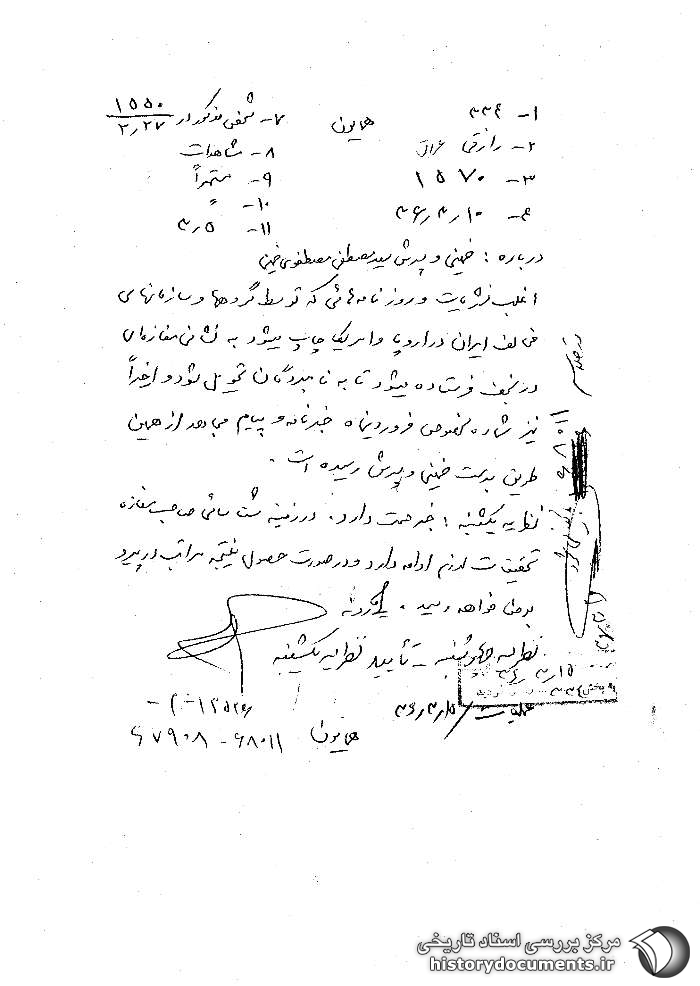 ۱- ۳۳۴
۲- رازقی عراق
۳- ۱۵۷۰
۴- ۳۶٫۳٫۱۰
همایون
۷- شخص مذکور از ۱۵۵۰/۲٫۲۷
۸- مشاهدات
۹- مستمراً
۱۰- "
۱۱- ۳٫۵
درباره : خمینی و پسرش سید مصطفی مصطفوی خمینی
اغلب نشریات و روزنامه‌هائی که توسط گروهها و سازمانهای
مخالف ایران در اروپا و امریکا چاپ میشود به نشانی مغازه‌ای
در نجف فرستاده میشود تا به نامبردگان تحویل شود و اخیراً
نیز شماره مخصوص فروردینماه خبرنامه و پیام مجاهد از همین
طریق بدست خمینی و پسرش رسیده است .
نظریه یکشنبه : خبر صحت دارد . در زمینه شناسائی صاحب مغازه
تحقیقات لازم ادامه دارد و در صورت حصول نتیجه مراتب در پیرو
بعرض خواهد رسید .
نظریه چهارشنبه - تأیید نظریه یکشنبه
عملیات ۳۶٫۳٫۱۵
۳۶٫۳٫۱۵
همایون ۶۷۹۰۸ - ۶۸۰۱۱
مرکز بررسی اسناد تاریخی
historydocuments.ir